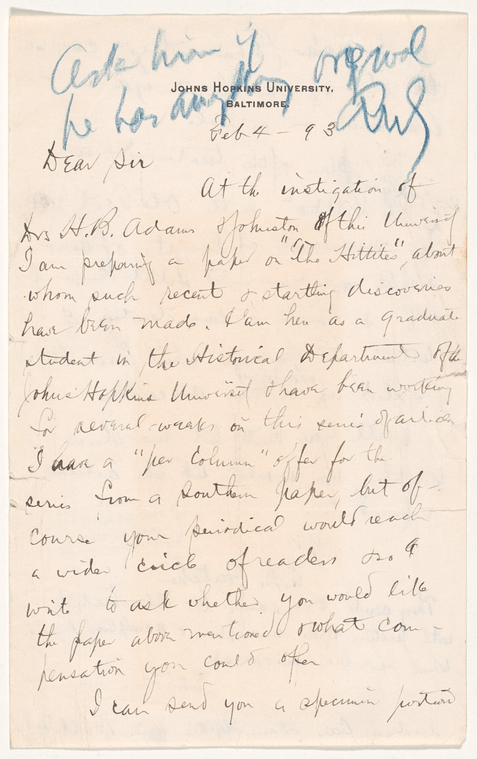 Ask him if
he has anything original
JOHNS HOPKINS UNIVERSITY,
BALTIMORE.
Feb 4 - 93
Dear Sir
At the instigation of
Drs H. B. Adams & Johnston of this University
I am preparing a paper on "The Hittites", about
whom such recent & startling discoveries
have been made. I am here as a graduate
student in the Historical Department of the
Johns Hopkins University & have been working
for several weeks on this series of articles
I have a "per Column" offer for the
series from a Southern paper, but of
course your periodical would reach
a wider circle of readers so I
write to ask whether you would like
the paper above mentioned & what com-
pensation you could offer
I can send you a specimen portion